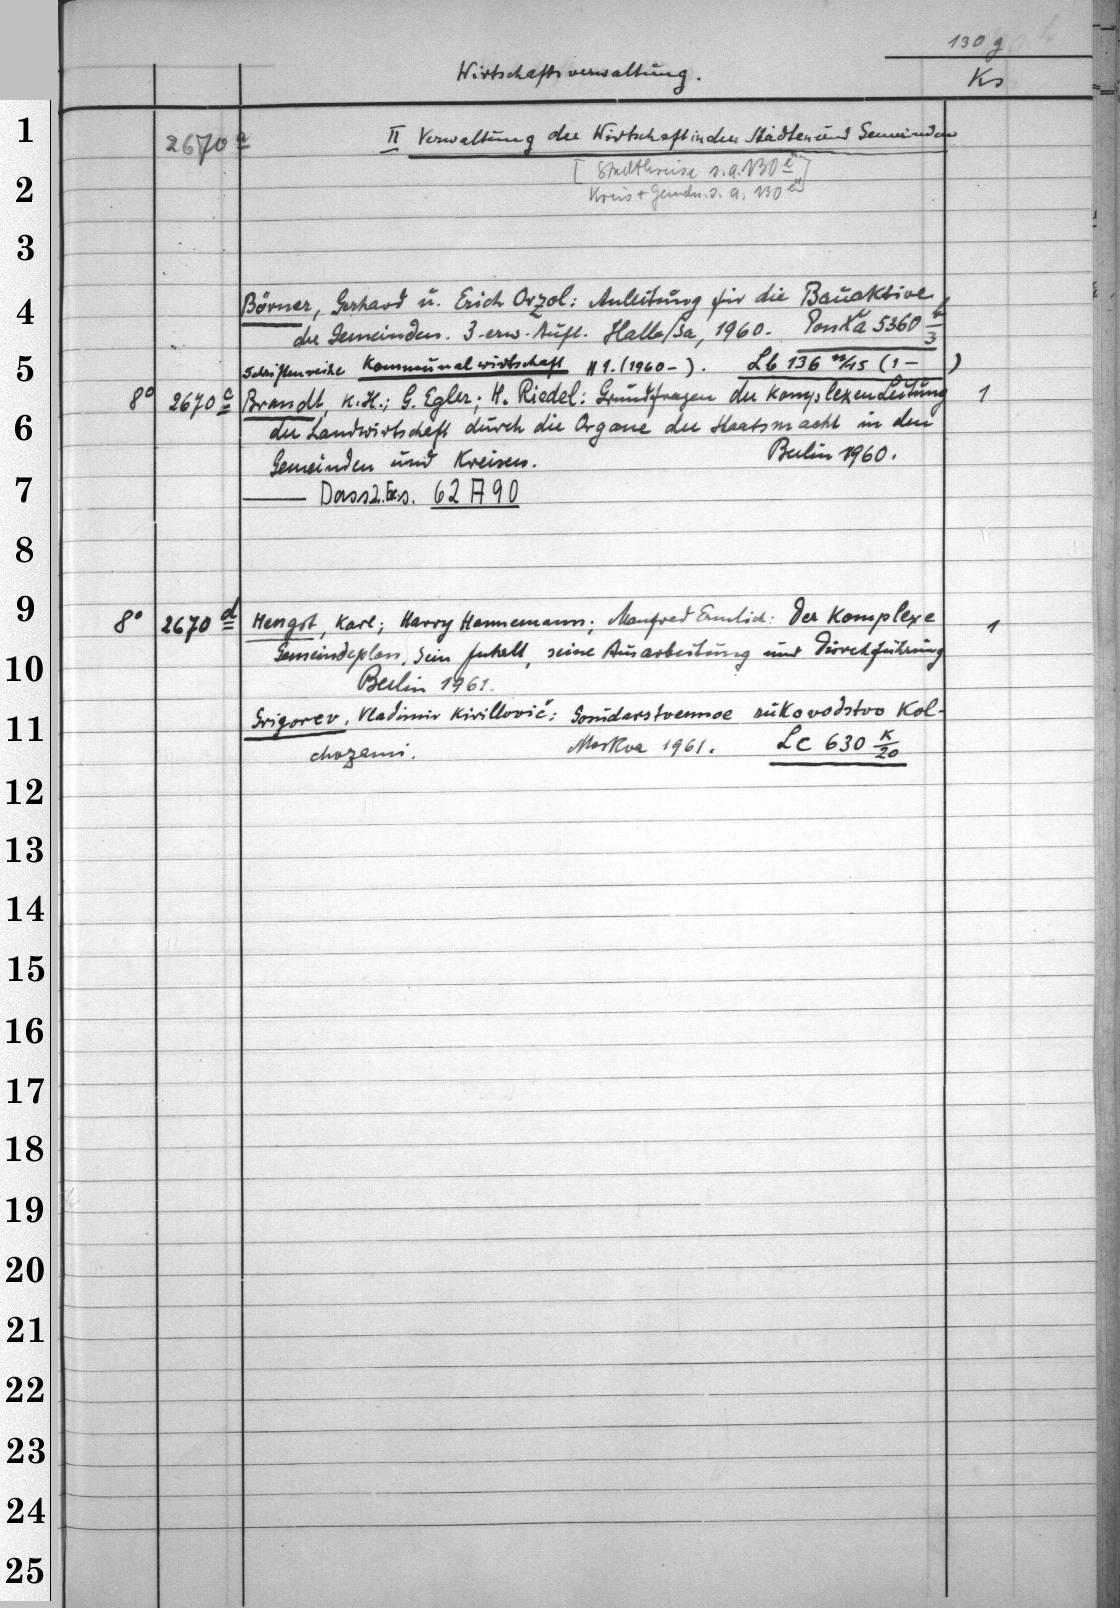 130 g
Wirtschaftsverwaltung.
Ks
1
2670 a
II Verwaltung der Wirtschaft in den Städten und Gemeinden
[Stadtkreise s.a. 130 e]
2
Kreis + Gemdn. s. a. 130
3
Börner, Gerhard u. Erich Orzol: Anleitung für die Bauaktive
4
der Gemeinden. 3. erw. Aufl. Halle/Sa, 1960. Pon Xa 5360 b/3
5
Schriftenreihe Kommunalwirtschaft H 1. (1960- ). Lb 136 n/45 (1- )
8° 2670 c Brandt, K.H.; G. Egler; H. Riedel: Grundfragen der komplexen Leitung 1
6
der Landwirtschaft durch die Organe der Staatsmacht in den
Gemeinden und Kreisen. Berlin 1960.
7
Dass. 2. Ex. s. 62 A 90
8
9
8° 2670 d Hengst, Karl; Harry Hannemann; Manfred Ermlich: Der Komplexe 1
10
Gemeindeplan, sein Inhalt, seine Ausarbeitung und Durchführung
Berlin 1961.
11
Grigorev, Vladimir Kirillovič: Gosudarstvennoe rukovodstvo kol-
chozami. Moskva 1961. Lc 630 K/20
12
13
14
15
16
17
18
19
20
21
22
23
24
25